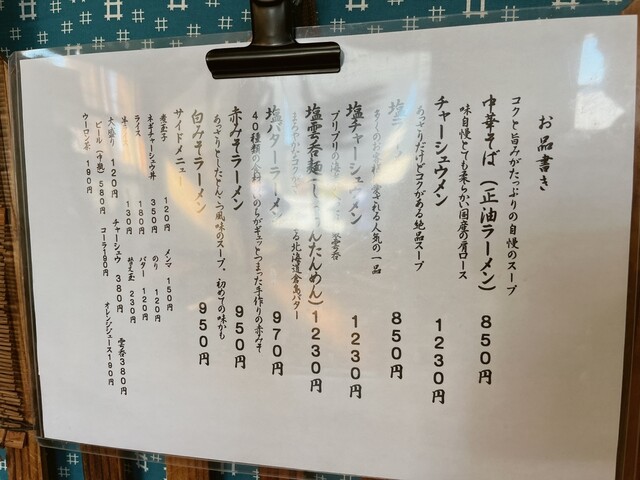 お品書き
コクと旨みがたっぷりの自慢のスープ
中華そば(正油ラーメン) 850円
味自慢とても柔らか、国産の肩ロース
チャーシュウメン 1230円
あっさりだけどコクがある絶品スープ
塩ラーメン 850円
される人気の一品
塩チャーシュウメン 1230円
プリプリの海
塩雲呑麺(しおわんたんめん) 1230円
る北海道倉島バター
塩バターラーメン 970円
40種類の がギュッとつまった手作りの赤みそ
赤みそラーメン 950円
あっさりとしたとんこつ風味のスープ。初めての味かも
白みそラーメン 950円
サイドメニュー
煮玉子 120円 メンマ 150円
ネギチャーシュウ丼 350円 のり 120円
ライス 180円 バター 120円
半ライス 130円 替え玉 230円
大盛り 120円 チャーシュウ 380円 雲呑 380円
ビール(中瓶) 580円 コーラ 190円 オレンジジュース 190円
ウーロン茶 190円